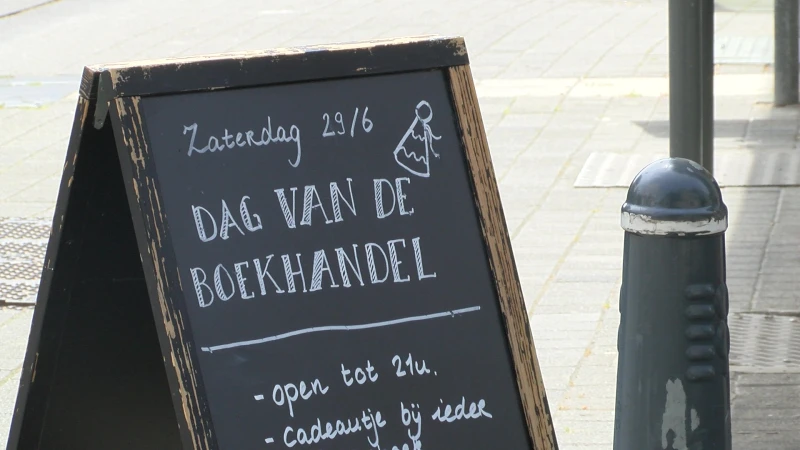 Zaterdag 29/6
DAG VAN DE
BOEKHANDEL
- open tot 21u.
- cadeautje bij ieder